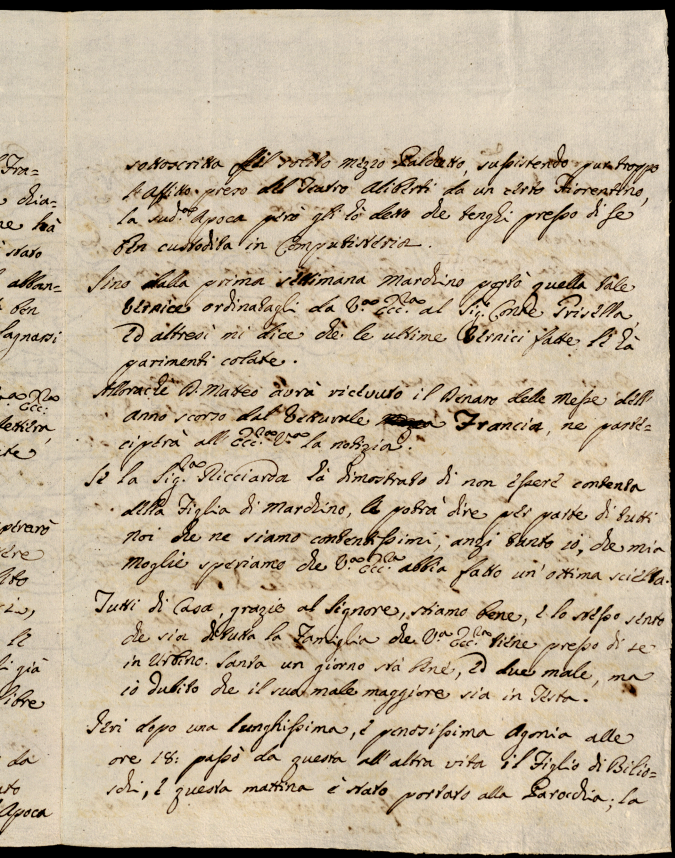 Fra=
dia=
ne hà
stato
abban=
ben
lagnarsi
Ecc:
lettera,
le
già
libre
da
Apoca
sottoscritta il solito mezzo Paldetto, sussistendo pur troppo
l'Affitto preso del Teatro Aliberti da un certo Fiorentino,
la sud.ᵃ Apoca però gli hò detto che tenghi presso di se
ben custodita in Computisteria.
Sino dalla prima settimana Marchino portò quella tale
Vernice ordinatagli da V.ᵃ Ecc.ᶻᵃ al Sig. Conte Prisella,
ed altresì mi dice che le ultime Vernici fatte le hà
parimenti colate.
Allorache D. Matteo avrà ricevuto il Denaro delle Messe dell'
anno scorso dal Vetturale Francia, ne parte=
ciperà all' Ecc.ᶻᵃ V.ᵃ la notizia.
Se la Sig.ᵃ Ricciarda hà dimostrato di non essere contenta
della Figlia di Marchino, le potrà dire per parte di tutti
noi che ne siamo contentissimi, anzi tanto io, che mia
moglie speriamo che V.ᵃ Ecc.ᶻᵃ abbia fatto un'ottima scielta.
Tutti di Casa, grazie al Signore, stiamo bene, e lo stesso sento
che sia di tutta la Famiglia che V.ᵃ Ecc.ᶻᵃ tiene presso di se
in Urbino. Santa un giorno stà bene, ed due male, ma
io dubito che il suo male maggiore sia in Testa.
Ieri dopo una lunghissima, e penosissima Agonia alle
ore 18: passò da questa all'altra vita il Figlio di Bilio=
schi, e questa mattina è stato portato alla Parocchia; la